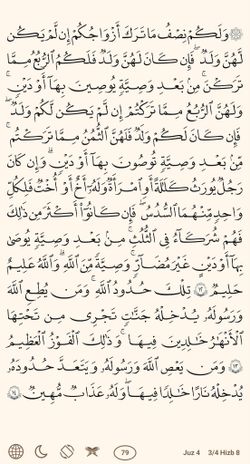 ۞ وَلَكُمْ نِصْفُ مَا تَرَكَ أَزْوَٰجُكُمْ إِن لَّمْ يَكُن
لَّهُنَّ وَلَدٌ ۚ فَإِن كَانَ لَهُنَّ وَلَدٌ فَلَكُمُ ٱلرُّبُعُ مِمَّا
تَرَكْنَ ۚ مِنۢ بَعْدِ وَصِيَّةٍ يُوصِينَ بِهَآ أَوْ دَيْنٍ ۚ
وَلَهُنَّ ٱلرُّبُعُ مِمَّا تَرَكْتُمْ إِن لَّمْ يَكُن لَّكُمْ وَلَدٌ ۚ
فَإِن كَانَ لَكُمْ وَلَدٌ فَلَهُنَّ ٱلثُّمُنُ مِمَّا تَرَكْتُم ۚ
مِّنۢ بَعْدِ وَصِيَّةٍ تُوصُونَ بِهَآ أَوْ دَيْنٍ ۗ وَإِن كَانَ
رَجُلٌ يُورَثُ كَلَٰلَةً أَوِ ٱمْرَأَةٌ وَلَهُۥٓ أَخٌ أَوْ أُخْتٌ فَلِكُلِّ
وَٰحِدٍ مِّنْهُمَا ٱلسُّدُسُ ۚ فَإِن كَانُوٓا۟ أَكْثَرَ مِن ذَٰلِكَ
فَهُمْ شُرَكَآءُ فِى ٱلثُّلُثِ ۚ مِنۢ بَعْدِ وَصِيَّةٍ يُوصَىٰ
بِهَآ أَوْ دَيْنٍ غَيْرَ مُضَآرٍّ ۚ وَصِيَّةً مِّنَ ٱللَّهِ ۗ وَٱللَّهُ عَلِيمٌ
حَلِيمٌ ۝١٢ تِلْكَ حُدُودُ ٱللَّهِ ۚ وَمَن يُطِعِ ٱللَّهَ
وَرَسُولَهُۥ يُدْخِلْهُ جَنَّٰتٍ تَجْرِى مِن تَحْتِهَا
ٱلْأَنْهَٰرُ خَٰلِدِينَ فِيهَا ۚ وَذَٰلِكَ ٱلْفَوْزُ ٱلْعَظِيمُ
۝١٣ وَمَن يَعْصِ ٱللَّهَ وَرَسُولَهُۥ وَيَتَعَدَّ حُدُودَهُۥ
يُدْخِلْهُ نَارًا خَٰلِدًا فِيهَا وَلَهُۥ عَذَابٌ مُّهِينٌ ۝١٤
79 Juz 4 3/4 Hizb 8